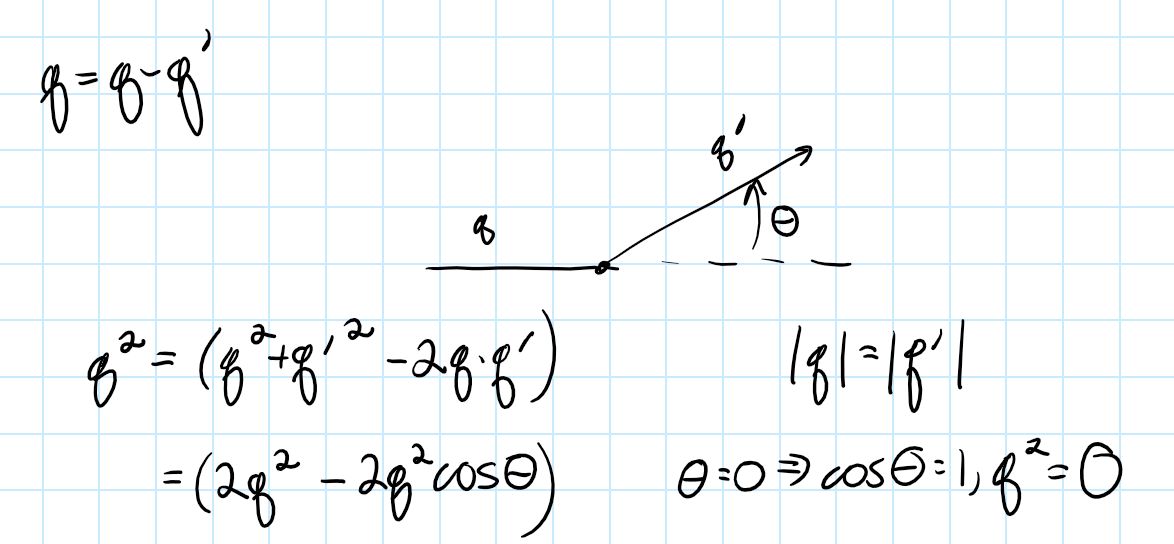 q = q - q'
q'
q
θ
q² = (q² + q'² - 2q·q')
|q| = |q'|
= (2q² - 2q² cosθ)
θ = 0 ⇒ cosθ = 1, q² = 0